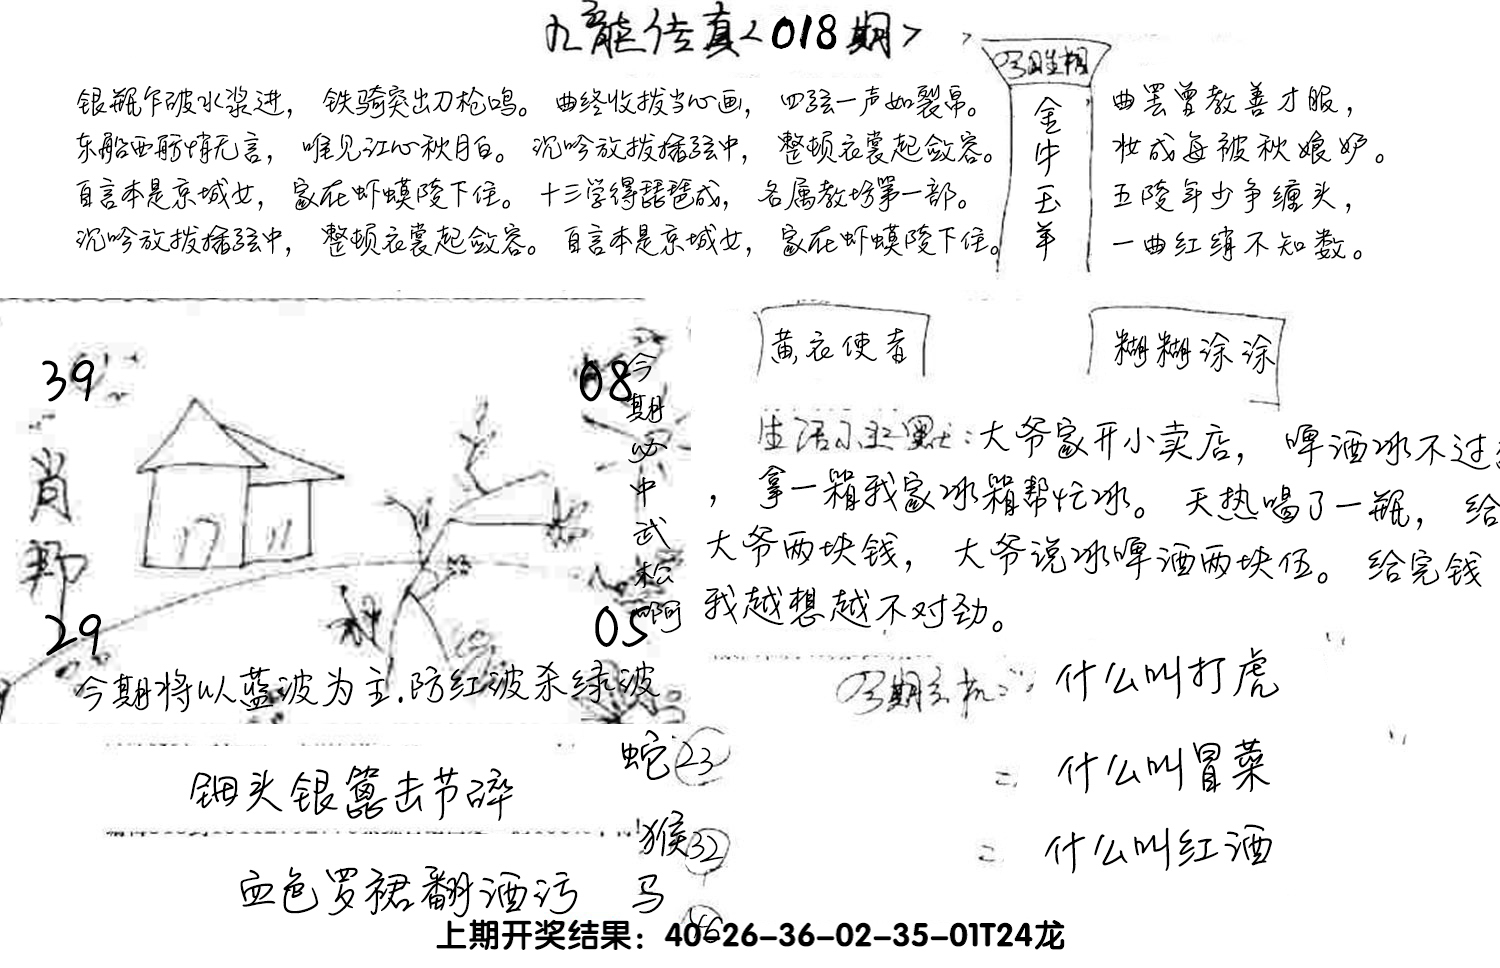 九龙传真<018期>
今期生相
金牛玉羊
银瓶乍破水浆迸，铁骑突出刀枪鸣。曲终收拨当心画，四弦一声如裂帛。
东船西舫悄无言，唯见江心秋月白。沉吟放拨插弦中，整顿衣裳起敛容。
自言本是京城女，家在虾蟆陵下住。十三学得琵琶成，名属教坊第一部。
沉吟放拨插弦中，整顿衣裳起敛容。自言本是京城女，家在虾蟆陵下住。
曲罢曾教善才服，
妆成每被秋娘妒。
五陵年少争缠头，
一曲红绡不知数。
39
08
肖
29
05
今期必中武松啊
今期将以蓝波为主.防红波杀绿波
黄衣使者
糊糊涂涂
生活小幽默:大爷家开小卖店，啤酒冰不过
，拿一箱我家冰箱帮忙冰。天热喝了一瓶，给
大爷两块钱，大爷说冰啤酒两块伍。给完钱
我越想越不对劲。
今期玄机:
什么叫打虎
二
什么叫冒菜
二
什么叫红酒
钿头银篦击节碎
血色罗裙翻酒污
蛇23
猴32
马46
上期开奖结果：40-26-36-02-35-01T24龙